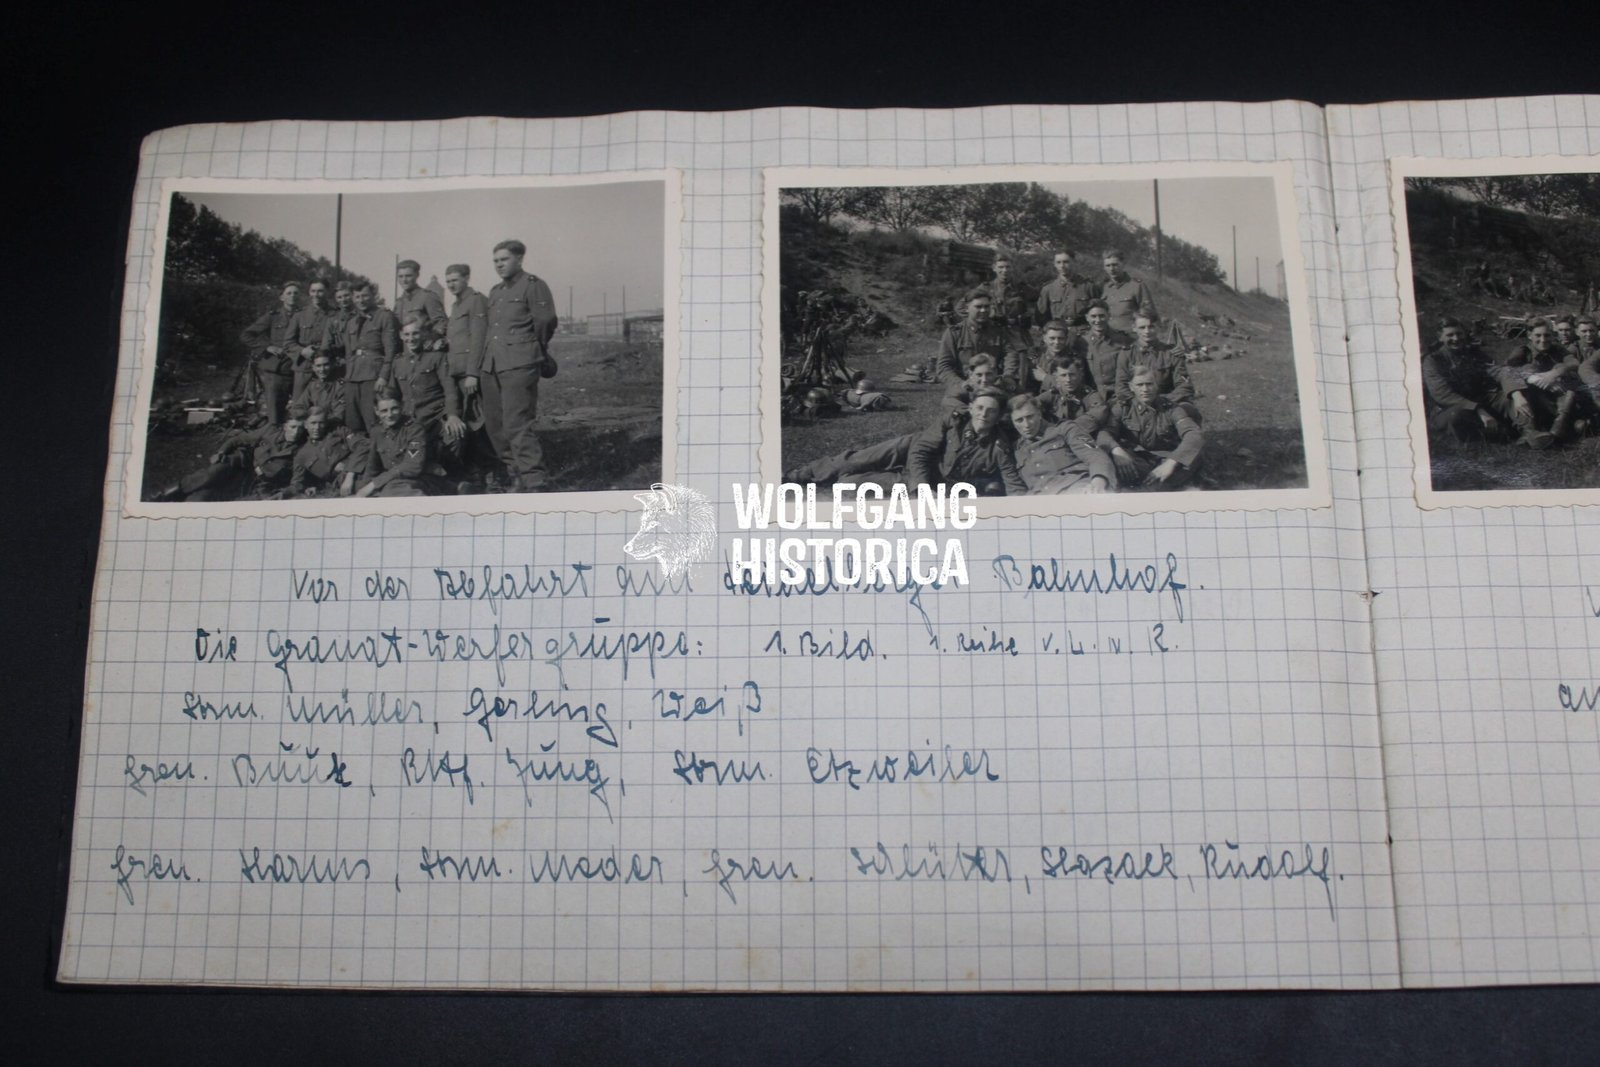 WOLFGANG
HISTORICA
Vor der Abfahrt am Heidelberger Bahnhof.
Die Granat-Werfergruppe: 1. Bild. 1. Reihe v. L. n. R.
Strm. Müller, Gerling, Weiß
Gren. Buuk, Rttf. Jung, Strm. Etzweiler
Gren. Harms, Strm. Meder, Gren. Schlüter, Rudolf.